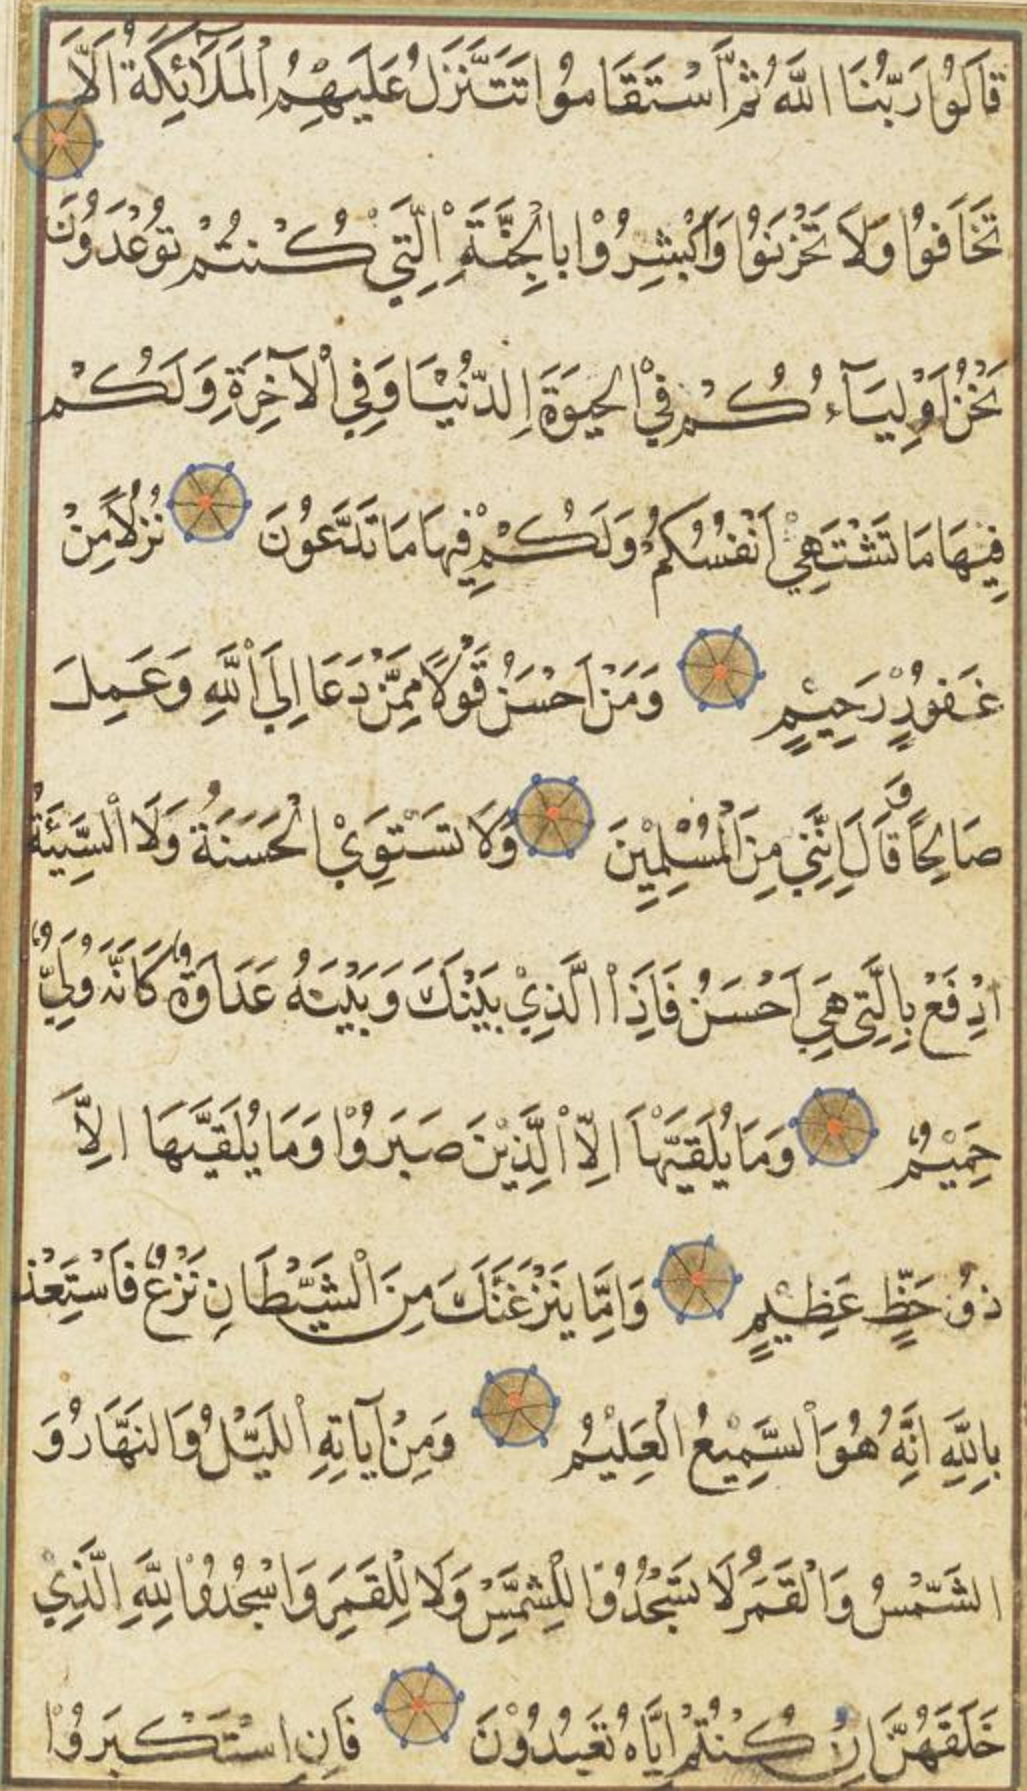 قَالُوا رَبُّنَا اللَّهُ ثُمَّ اسْتَقَامُوا تَتَنَزَّلُ عَلَيْهِمُ الْمَلَائِكَةُ اَلَّا
تَخَافُوا وَلَا تَحْزَنُوا وَاَبْشِرُوْا بِالْجَنَّةِ الَّتِي كُنتُمْ تُوعَدُونَ
نَحْنُ اَوْلِيَآءُكُمْ فِي الْحَيٰوةِ الدُّنْيَا وَفِي الْآخِرَةِ وَلَكُمْ
فِيهَا مَا تَشْتَهِي اَنْفُسُكُمْ وَلَكُمْ فِيهَا مَا تَدَّعُونَ نُزُلًا مِنْ
غَفُورٍ رَحِيْمٍ وَمَنْ اَحْسَنُ قَوْلًا مِمَّنْ دَعَا اِلَي اللَّهِ وَعَمِلَ
صَالِحًا وَ قَالَ اِنَّنِي مِنَ الْمُسْلِمِيْنَ وَلَا تَسْتَوِيْ الْحَسَنَةُ وَلَا السَّيِّئَةُ
اِدْفَعْ بِالَّتِي هِيَ اَحْسَنُ فَاِذَا الَّذِيْ بَيْنَكَ وَبَيْنَهُ عَدَاوَةٌ كَاَنَّهُ وَلِيٌّ
حَمِيْمٌ وَمَا يُلَقّٰيهَا اِلَّا الَّذِيْنَ صَبَرُوْا وَمَا يُلَقّٰيهَا اِلَّا
ذُو حَظٍّ عَظِيْمٍ وَاِمَّا يَنْزَغَنَّكَ مِنَ الْشَّيْطَانِ نَزْغٌ فَاسْتَعِذْ
بِاللَّهِ اِنَّهُ هُوَ السَّمِيْعُ الْعَلِيْمُ وَمِنْ آيَاتِهِ اللَّيْلُ وَالنَّهَارُ وَ
الشَّمْسُ وَالْقَمَرُ لَا تَسْجُدُوْا لِلشَّمْسِ وَلَا لِلْقَمَرِ وَاسْجُدُوْا لِلَّهِ الَّذِي
خَلَقَهُنَّ اِنْ كُنْتُمْ اِيَّاهُ تَعْبُدُوْنَ فَاِنِ اسْتَكْبَرُوْا